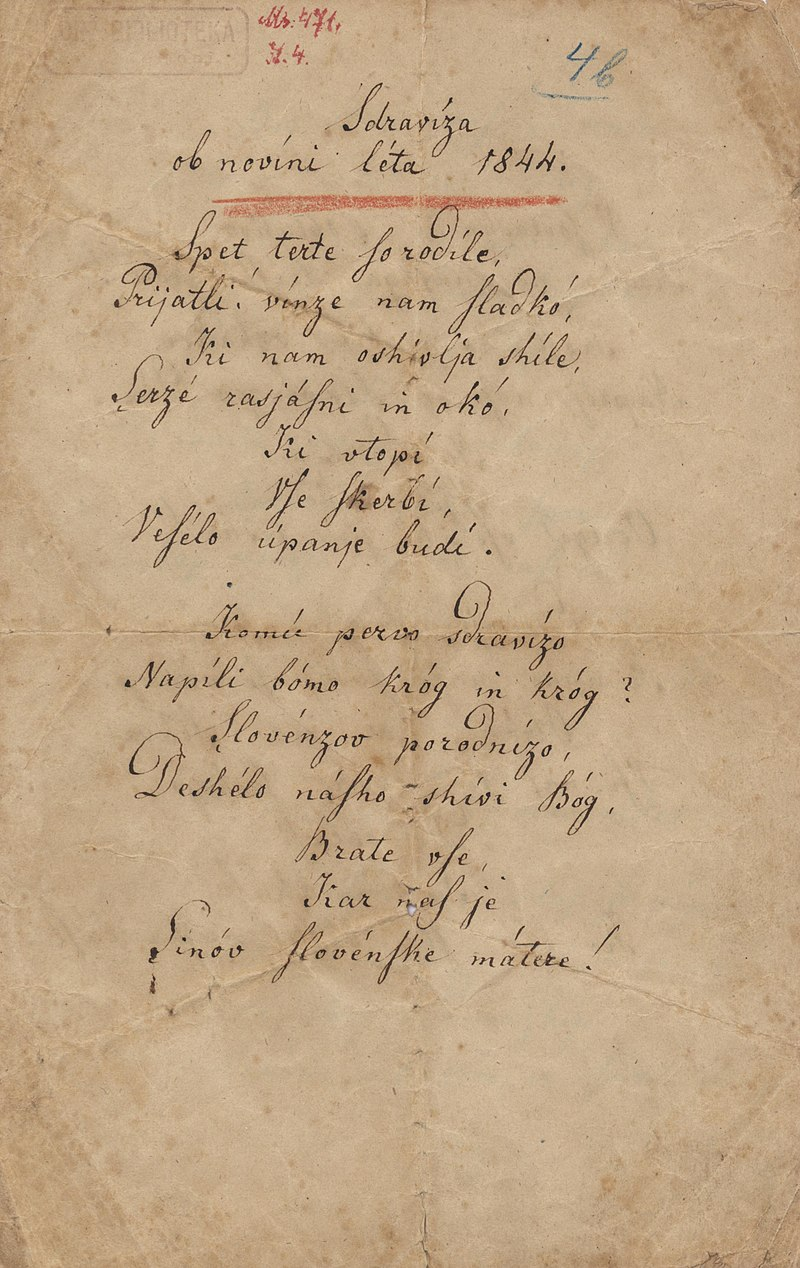 Ms. 471.
N. 4.
4b
Sdravíza
ob novíni léta 1844.
Spet terte ſo rodíle,
Prijatli! vínze nam ſladkó,
Ki nam oshivlja shíle,
Serzé rasjáſni in okó,
Ki vtopí
Vſe ſkerbí,
Veſélo úpanje budí.
Komú pervo sdravízo
Napíli bómo króg in króg?
Slovénzov porodnízo,
Deshélo náſho shívi Bóg,
Brate vſe,
Kar naſ je
Sinóv ſlovénſke mátere!